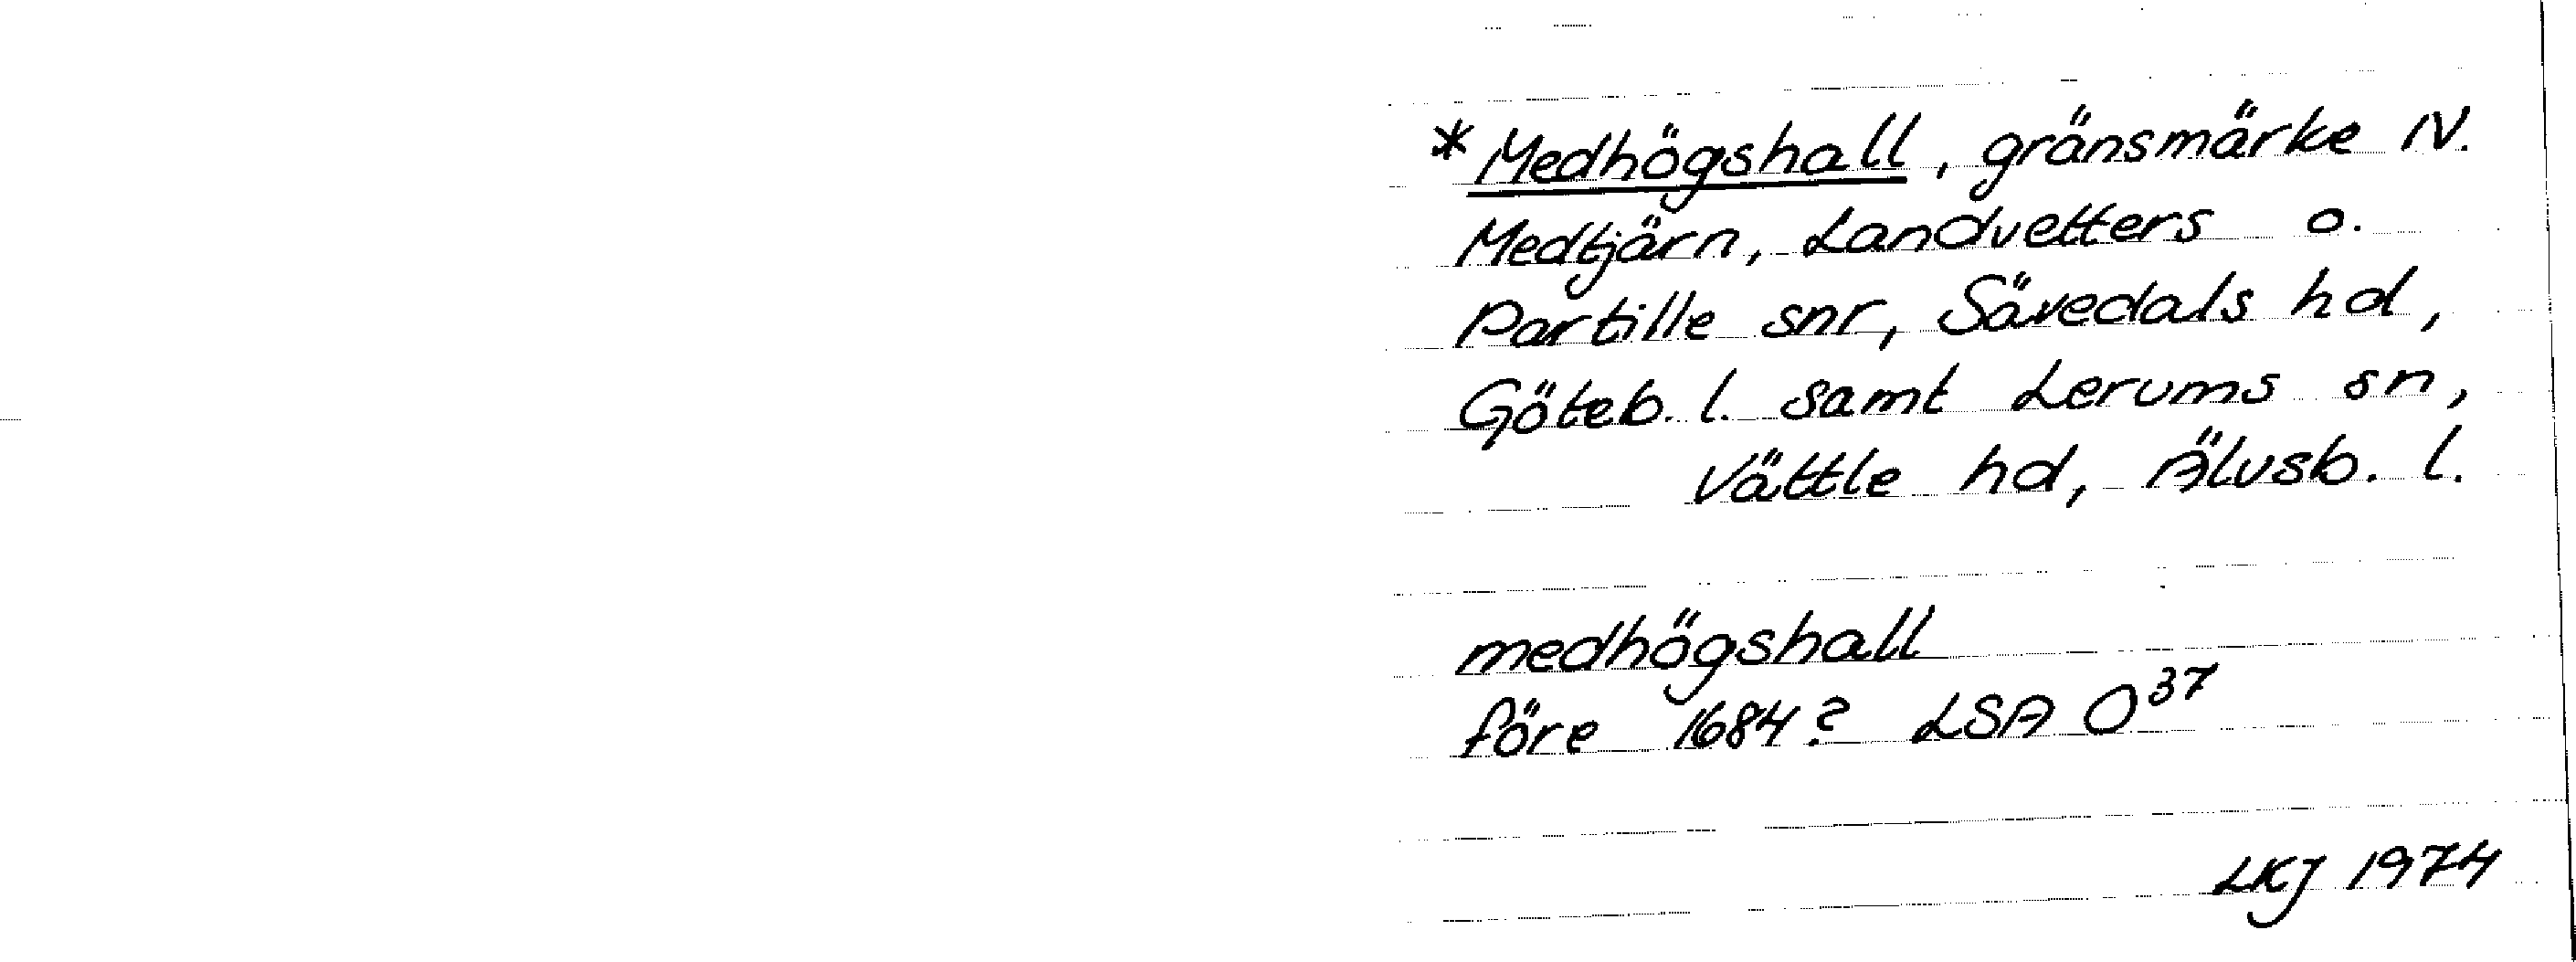 *Medhögshall, gränsmärke N.
Medtjärn, Landvetters o.
Partille snr, Sävedals hd,
Göteb. l. samt Lerums sn,
Vättle hd, Älvsb. l.
medhögshall
före 1684? LSA O³⁷
LKJ 1974